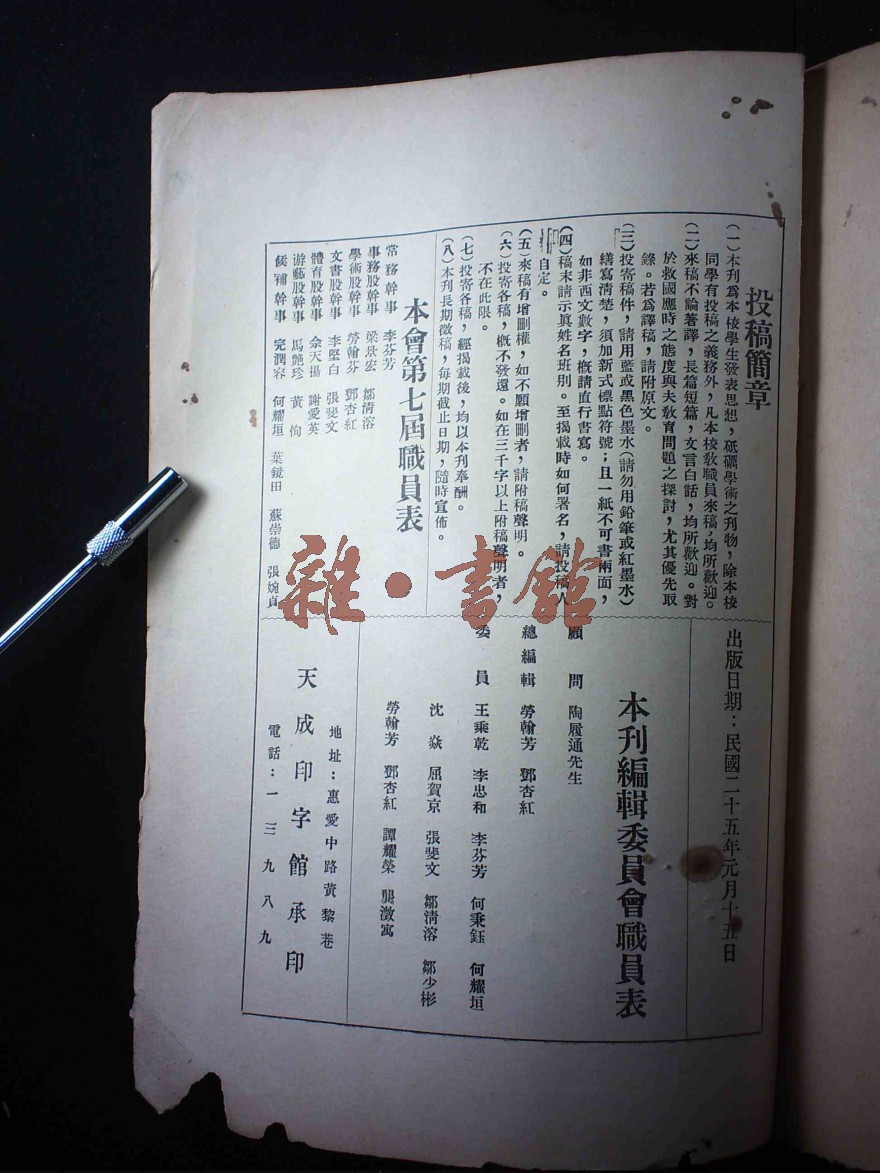 投稿簡章
(一)本刊爲本校學生發表思想，砥礪學術之刊物，除本校
同學有投稿之義務外，凡本校敎職員來稿，均所歡迎。
(二)來稿不論著譯，長篇短篇，文言白話，均所歡迎。對
於救國應時之態度與夫敎育問題之探討，尤其優先取
錄。若爲譯稿，請附原文。
(三)投寄稿件，請用藍或黑色墨水(請勿用鉛筆或紅墨水)
繕寫清楚，須加新式標點符號；且一紙不可書兩面，
如非西文數字，槪請直行書寫。
(四)稿末請示眞姓名班別。至揭載時如何署名，請投稿人
自定。
(五)來稿有增刪權，如不願增刪者，請附稿聲明。
(六)投寄各稿，槪不發還。如在三千字以上附稿聲明者，
不在此限。
(七)投寄各稿，經揭載後，均以本刊奉酬。
(八)本刊長期徵稿，每期截止日期，隨時宣佈。
本會第七屆職員表
常務幹事 李芬芳
事務股幹事 梁景宏 鄒清溶
學術股幹事 勞翰芬 鄧杏紅
文書股幹事 李堅白 張斐文
體育股幹事 余天揚 謝愛英
游藝股幹事 馬艷珍 黃恂
候補幹事 完潤容 何耀垣 葉鏡田 蘇崇德 張婉貞
出版日期：民國二十五年元月十五日
本刊編輯委員會職員表
顧問 陶履通先生
總編輯 勞翰芳 鄧杏紅
委員 王乘乾 李忠和 李芬芳 何秉鈺 何耀垣
沈焱 屈賀京 張斐文 鄒清溶 鄒少彬
勞翰芳 鄧杏紅 譚耀榮 龔澂寓
地址：惠愛中路黃黎巷
天成印字館承印
電話：一三九八九
雜·書館